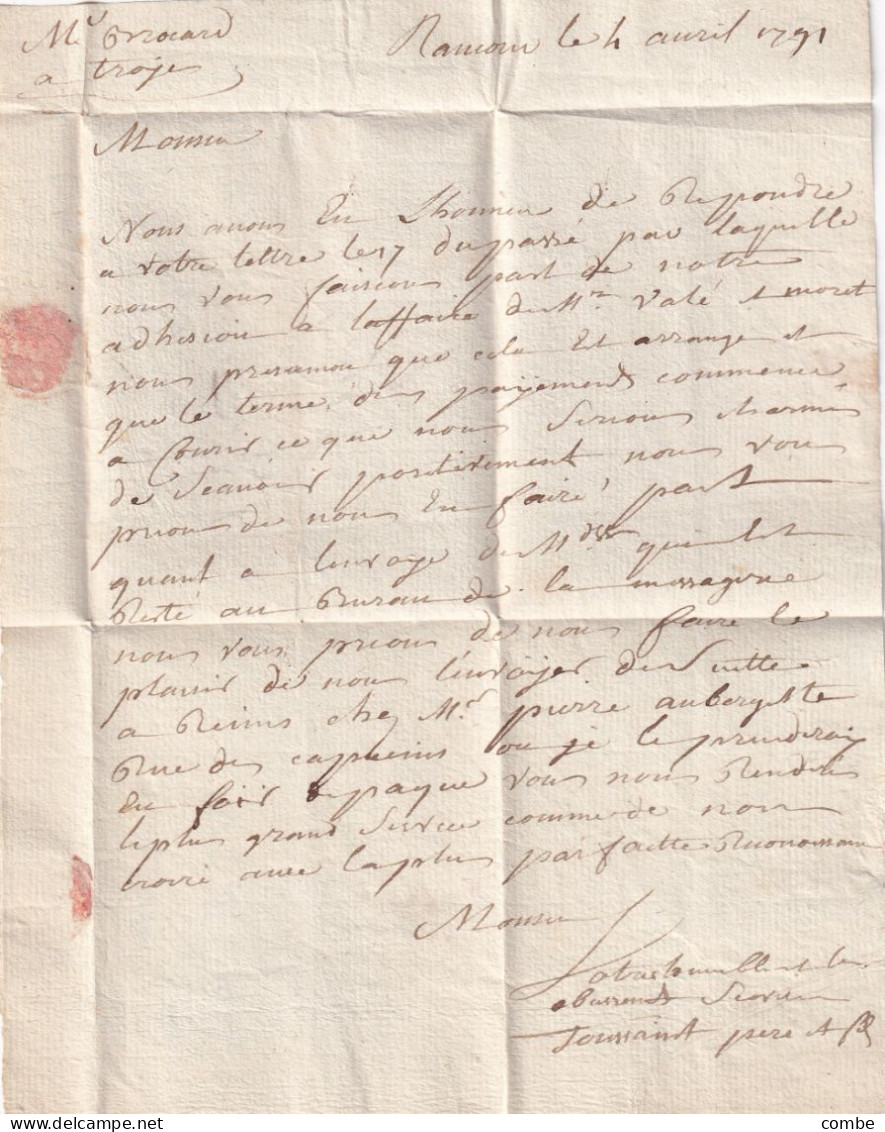 Mr Brocard
a troyes
le 4 avril 1791
Monsieur
Nous avons Eu Lhonneur de Repondre
a votre lettre le 17 du passé par laquelle
nous vous faision part de notre
adhesion a laffaire de Mrs Valé et moret
nous presumon que cela Est arrangé et
que le terme des payements commence
a Courir ce que nous Serions charmés
de Scavoir positivement nous vous
prions de nous En faire part
quant a lenvoye de Mdses qui Est
Resté au Bureau de la messagerie
nous vous prions de nous faire le
plaisir de nous lenvoyer de Suitte
a Reims chez Mr pierre aubergiste
Rue des capucins ou je le prenderay
En foir de paque vous nous Renderé
le plus grand Service comme de nous
croire avec la plus parfaitte Reconoissance
Monsieur
Votre tres humble et tres
obeissents Servi
Toussaint pere et fils
www.delcampe.net
combe